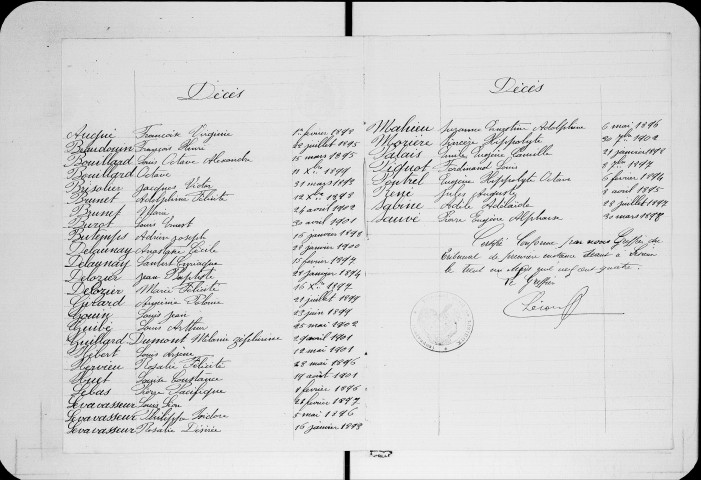 Décès
Auguié François Virginie 1r février 1898
Beaudouin François Henri 28 juillet 1895
Bouillard Louis Octave Alexandre 15 mars 1895
Bouillard Octave 11 Xbre 1899
Brisolier Jacques Victor 31 mars 1898
Brunet Adolphine Féliste 12 Xbre 1893
Brunet 24 août 1902
Burot Louis Ernest 30 avril 1901
Butemps Adrien Joseph 15 janvier 1898
Delaunay Anastasie Cécile 28 janvier 1900
Delaunay Lambert Cyriaque 15 février 1897
Delozier Jean Baptiste 28 janvier 1894
Delozier Marie Féliste 16 Xbre 1897
Girard 21 juillet 1899
Gouin Louis Jean 23 juin 1899
Guibé Louis Arthur 25 mai 1902
Guillard Dumont Mélanie Zéphirine 29 avril 1901
Hébert Louis Arsène 12 mai 1901
Hervieu Rosalie Féliste 28 mai 1896
Huet Louise Constance 19 août 1901
Lebas Pierre Pacifique 1 février 1896
Levavasseur Louis Léon 28 février 1897
Levavasseur Philippe Isidore 5 mai 1896
Levavasseur Rosalie Désirée 16 janvier 1898
Décès
Mahieu Suzanne Augustine Adolphine 6 mai 1896
Mozière Hippolyte 20 7bre 1902
Palais Emile Eugène Camille 21 janvier 1898
Piquot Ferdinand Louis 8 7bre 1897
Pontrel Eugène Hippolyte Octave 6 février 1894
Jules Auguste 8 août 1895
Sabine Adèle Adélaïde 28 juillet 1897
Sauvé Pierre Eugène Alphonse 30 mars 1898
Certifié Conforme par nous Greffier du
Tribunal de première instance
le trente un mars mil neuf cent quatre
Le Greffier